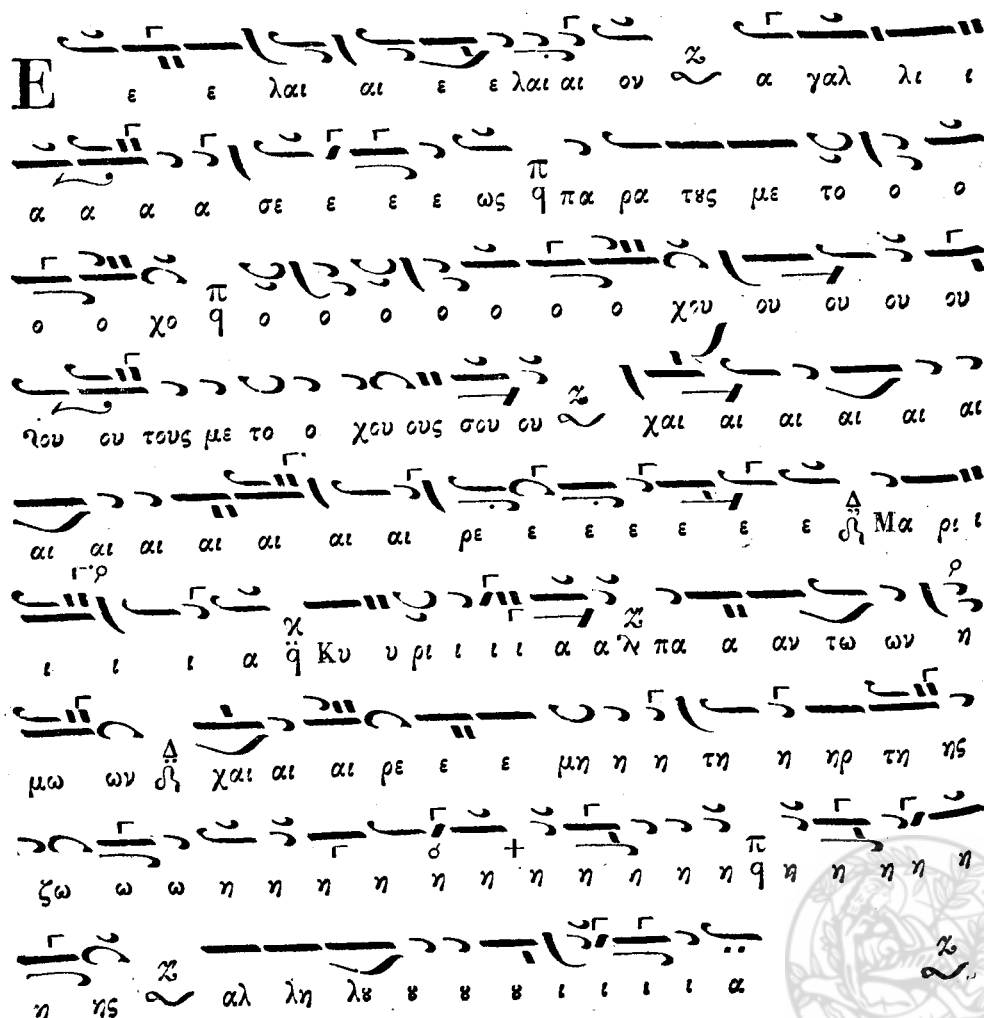 Ε ε ε λαι αι ε ε λαι αι ον α γαλ λι ι
α α α α σε ε ε ε ως π q πα ρα τȣς με το ο ο
ο ο χο π q ο ο ο ο ο ο ο χου ου ου ου ου
του ου τους με το ο χου ους σου ου χαι αι αι αι αι αι
αι αι αι αι αι αι αι ρε ε ε ε ε ε ε Δ Μα ρι ι
ι ι ι α q Κυ υ ρι ι ι ι α α πα α αν τω ων η
μω ων Δ χαι αι αι ρε ε ε μη η η τη η ηρ τη ης
ζω ω ω η η η η η η η η η η η π q η η η η η
η ης αλ λη λȣ ȣ ȣ ȣ ι ι ι ι α